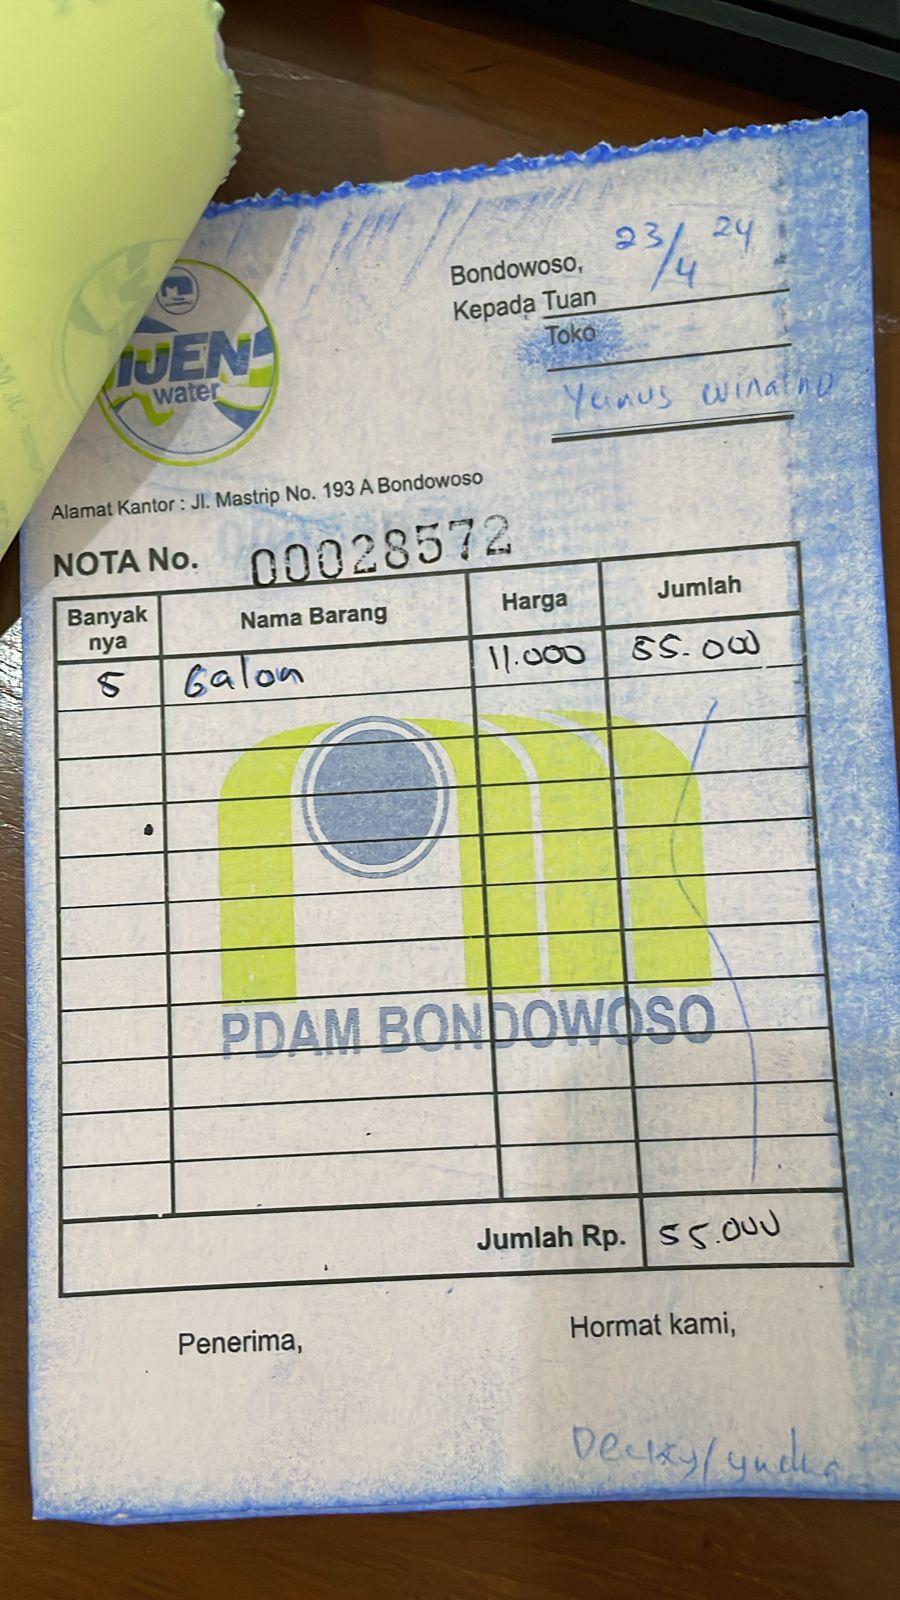 IJEN
water
Bondowoso, 23/4 24
Kepada Tuan
Toko
Yunus Winarno
Alamat Kantor : Jl. Mastrip No. 193 A Bondowoso
NOTA No. 00028572
Banyak nya Nama Barang Harga Jumlah
5 Galon 11.000 55.000
PDAM BONDOWOSO
Jumlah Rp. 55.000
Penerima, Hormat kami,